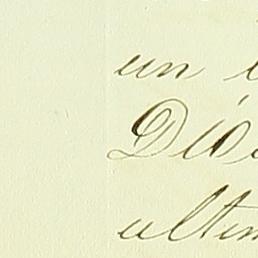 un
Dio
ultim